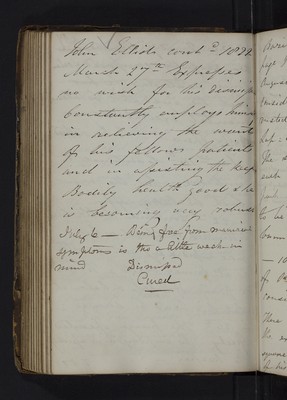 John Elliott cont.d 1838
March 27th Expresses
no wish for his dismissal
Constantly employs himself
in relieving the wants
of his fellow patients
and in assisting the Keep
Bodily health good & he
is becoming very robust
July 6 — Being free from maniacal
symptoms is tho a little weak in
mind Dismissed
Cured